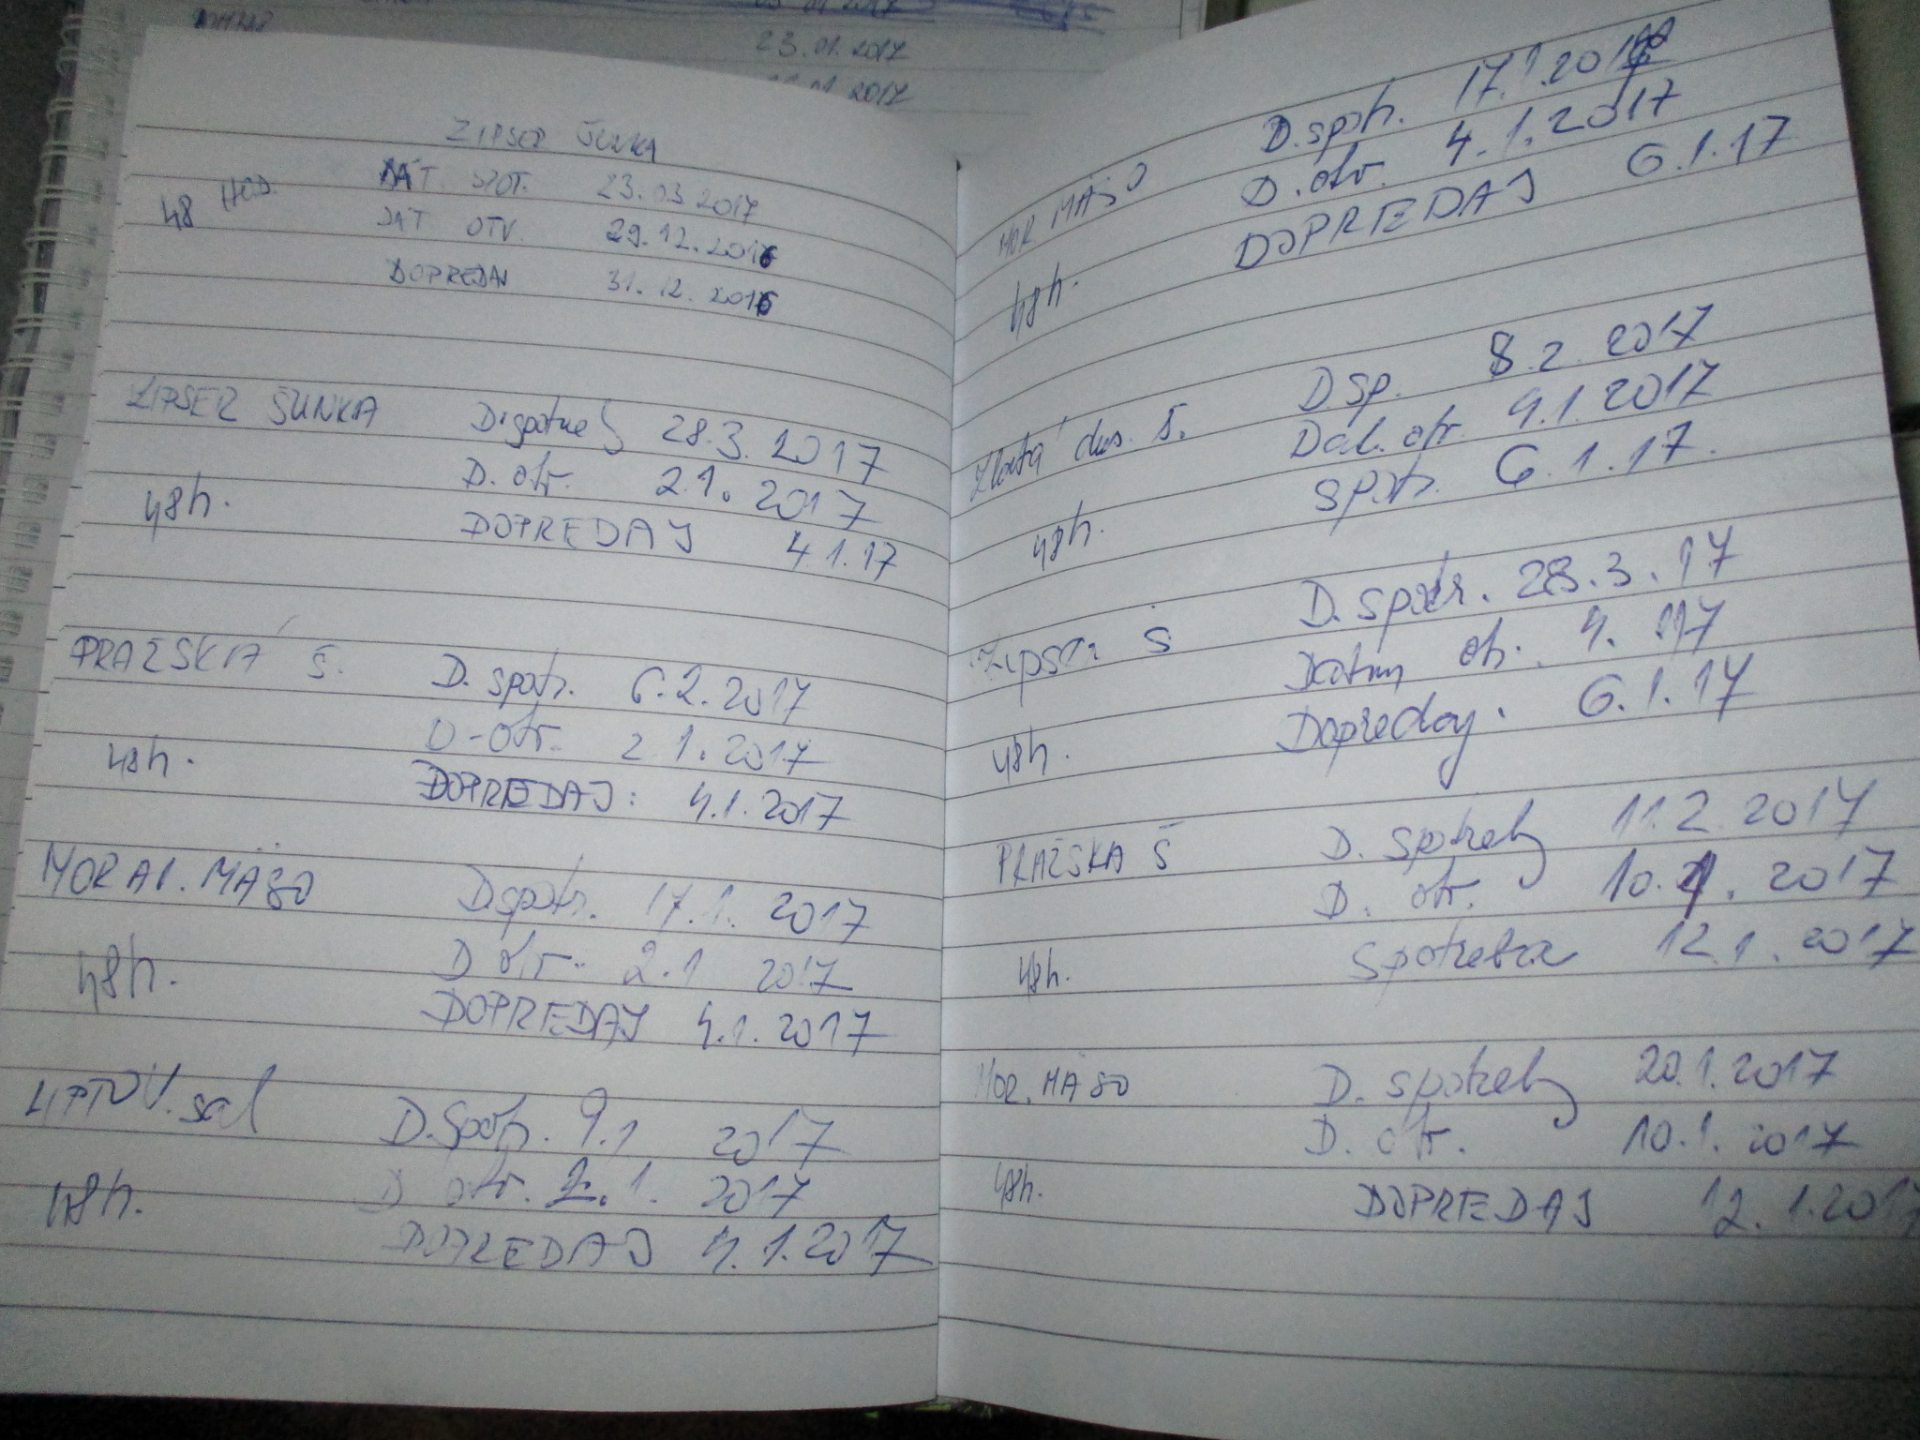 23.01.2017
2017
ZIPSER ŠUNKA
48 HOD DÁT SPOT. 23.03.2017
DÁT OTV. 29.12.2016
DOPREDAJ 31.12.2016
ZIPSER ŠUNKA D. 28.3.2017
D. otv. 2.1.2017
48h.
DOPREDAJ 4.1.17
PRAŽSKÁ Š. D. spotr. 6.2.2017
D. otv. 2 1.2017
48h.
DOPREDAJ: 4.1.2017
MORAV. MÄSO D spotr. 17.1.2017
D otv. 2.1 2017
48h.
DOPREDAJ 4.1.2017
LIPTOV. sal D. Spotr. 9.1 2017
D otv. 2.1. 2017
48h.
DOPREDAJ 4.1.2017
D. spotr. 17.1.2017
MOR MÄSO D. otv. 4.1.2017
48h. DOPREDAJ 6.1.17
D sp. 8.2 2017
Zlatá dus. š. Dát. otv. 4.1.2017
48h. spotr. 6.1.17.
D. spotr. 28.3.17
Zipser Š Datum otv. 4. 1.17
48h. Dopredaj. 6.1.17
PRAŽSKA Š D. spotreby 11.2 2017
D. otv. 10.1.2017
48h. Spotreba 12.1.2017
MOR. MÄSO D. spotreby 20.1.2017
D. otv. 10.1.2017
48h. DOPREDAJ 12.1.2017